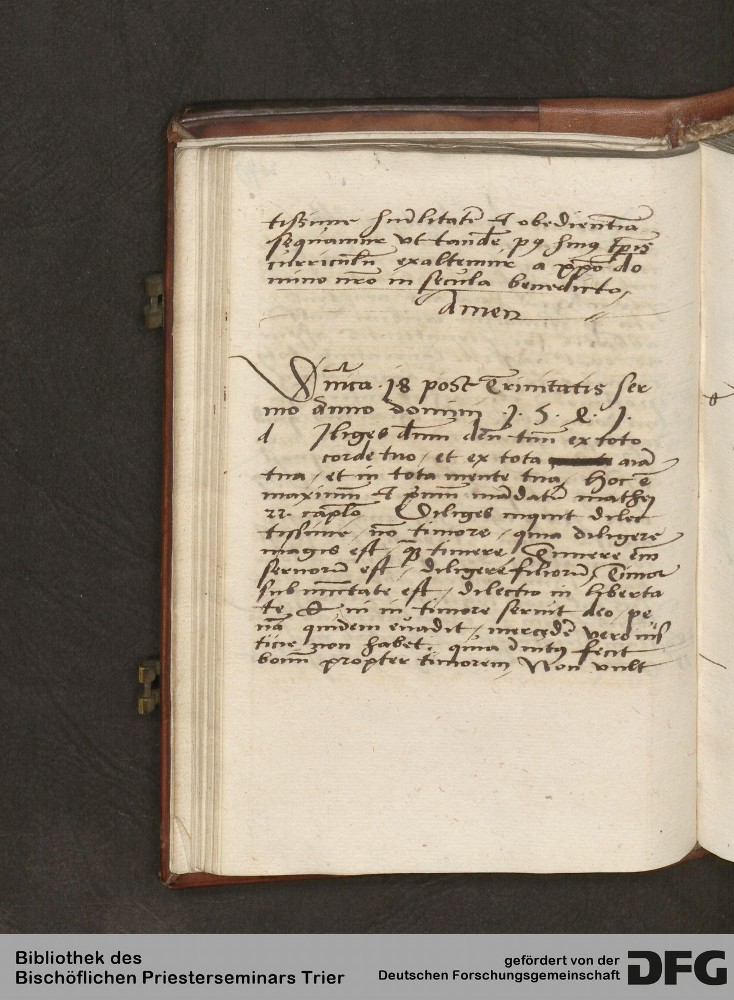 tissime hūilitatē et obedientiā
sequamur ut tandē pꝰ huiꝰ tp̄is
curriculū exaltemur a xp̄o do
mino nr̄o in secula benedicto,
Amen
Dn̄ica .18 post Trinitatis ser
mo anno domini .1. 5. 4. 1.
d Iliges dn̄m deū tuū ex toto
corde tuo, et ex tota aīa
tua, et in tota mente tua, Hoc ē
maximū et p̄mū mādatū mathei
22. cap̄lo Diliges inquit dilec
tissime, nō timore, quia diligere
magis est, quā timere, Timere em̄
seruorū est, diligere filiorū, Timor
sub est, dilectio in liberta
te, Et in timore seruit deo, pe
nā quidem euadit, mercedē vero iusticie non habet, quia inuitꝰ fecit
bonū propter timorem, Non vult
Bibliothek des
Bischöflichen Priesterseminars Trier
gefördert von der
Deutschen Forschungsgemeinschaft
DFG